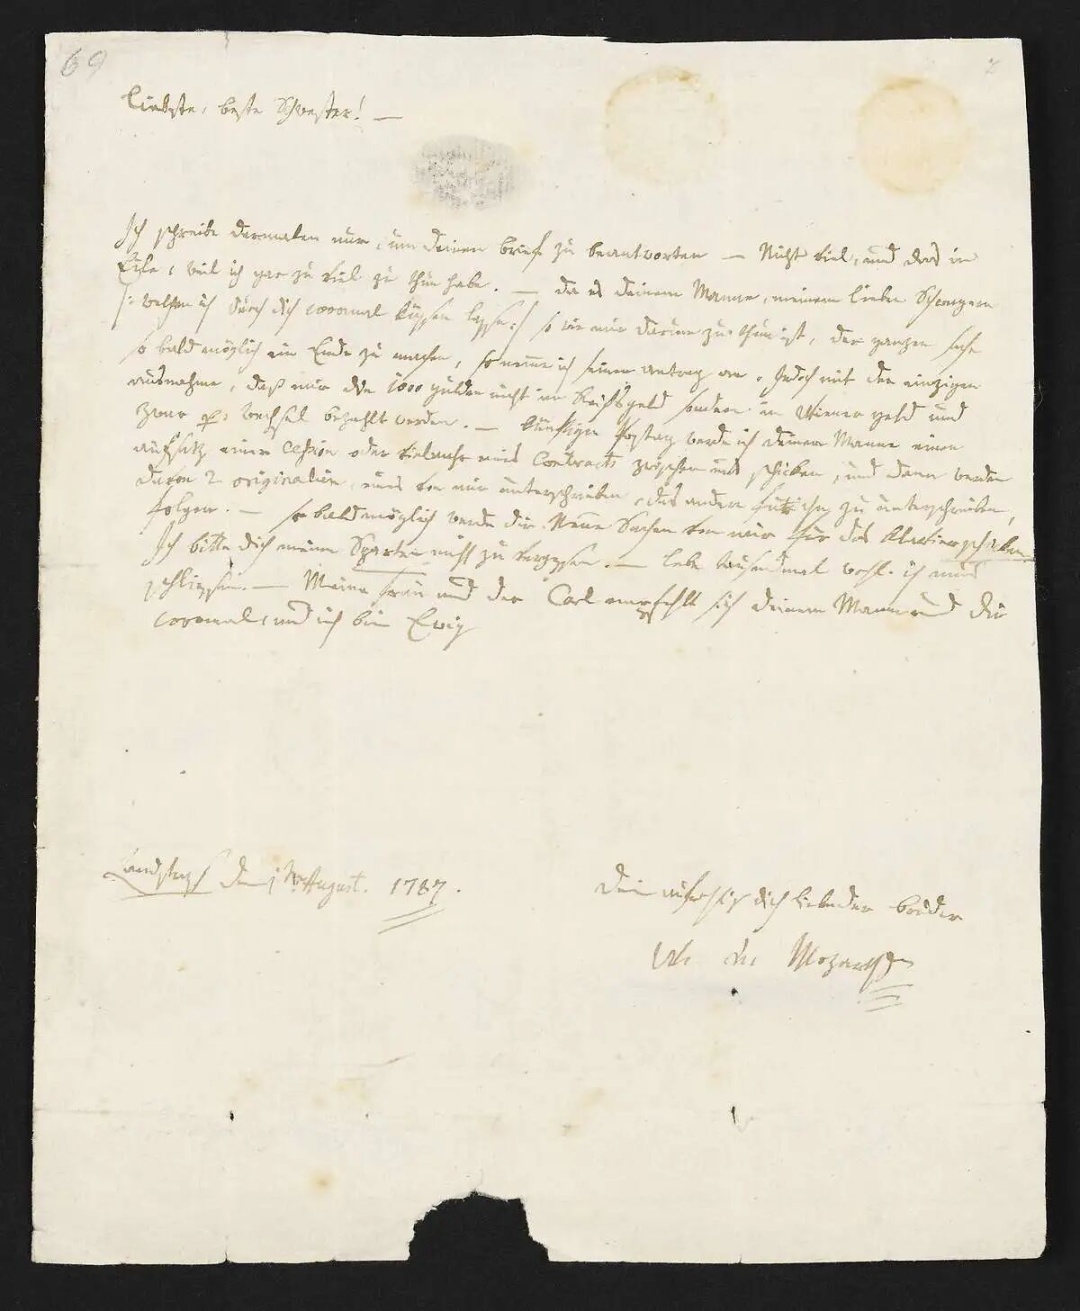 69
Liebste, beste Schwester! —
Ich schreibe dermalen nur, um deinen brief zu beantworten — Nicht viel, und das in
Eyle, weil ich gar zu viel zu thun habe. — da es deinem Manne, meinem lieben Schwagern
|: welchen ich durch dich 1000mal küssen lasse :| so wie mir darum zu thun ist, der ganzen sache
so bald möglich ein Ende zu machen, so neme ich seinen antrag an. Jedoch mit der einzigen
ausnahme, daß mir die 1000 gulden nicht in Reichsgeld sondern in Wiener geld und
zwar per Wechsel bezahlt werden. — künftigen Postag werde ich deinem Manne einen
aufsatz einer Cession oder vielmehr eines Contracts zwischen uns schicken, und dann werden
davon 2 originalien, eins von mir unterschrieben, das andere für ihn zu unterschreiben,
folgen. — so bald möglich werde dir Neue Sachen von mir für das klavier schicken
Ich bitte dich meine Sparten nicht zu vergessen. — lebe tausendmal wohl. ich muß
schliessen. — Meine frau und der Carl empfehlt sich deinem Mann und dir
1000mal, und ich bin Ewig
Landstraß den 1t August. 1787.
Dein aufrichtig dich liebender bruder
W: A: Mozart